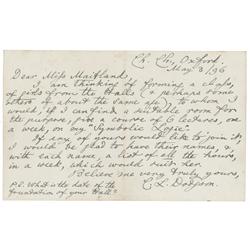 Ch. Ch., Oxford.
May 3/96
Dear Miss Maitland,
I am thinking of forming a class,
of girls from the Halls (& perhaps some
others of about the same age), to whom I
would, if I can find a suitable room for
the purpose, give a course of 6 lectures, one
a week, on my "Symbolic Logic".
If any of yours would like to join it,
I would be glad to have their names, &,
with each name, a list of all the hours,
in a week, which would suit her.
Believe me very truly yours,
C. L. Dodgson.
P.S. What is the date of the
foundation of your Hall?